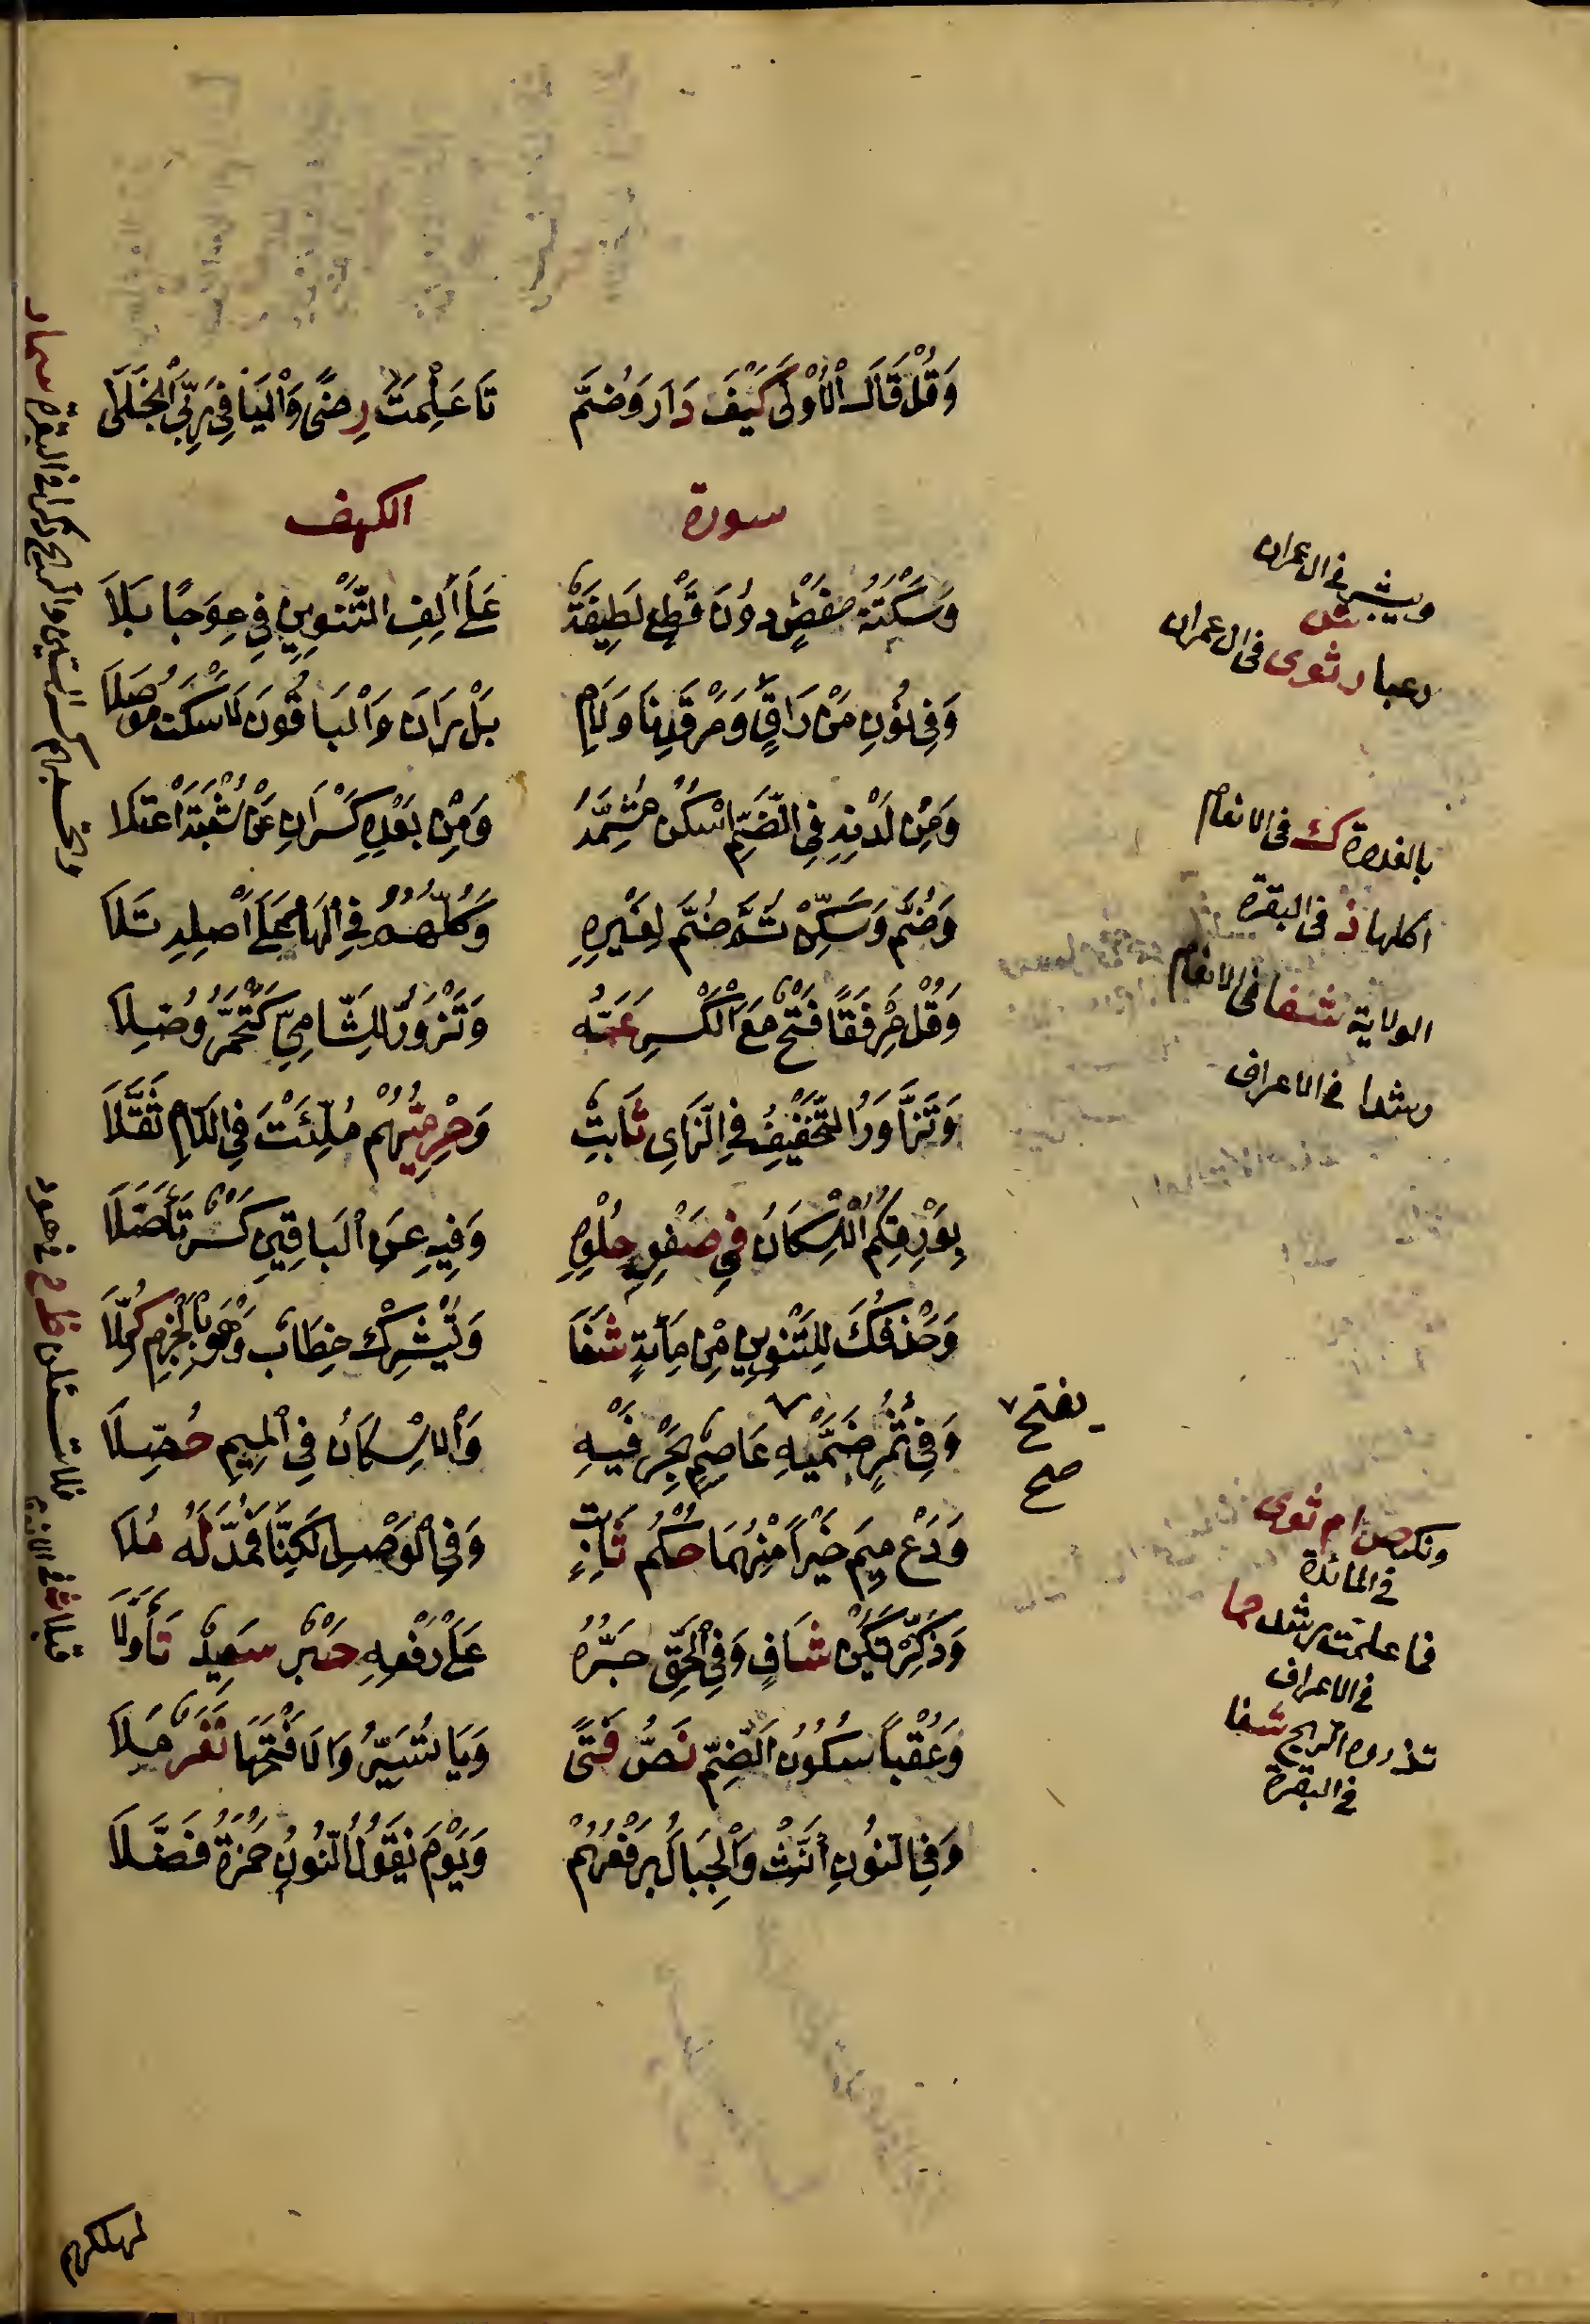 وَقُلْ قَالَ الْأُوْلَى كَيْفَ دَارَ وَضُمَّ تَا عَلِمْتَ رِضًى وَالْيَا فِي رَبِّيَ انْجَلَى
سورة الكهف
وَسَكْتَةُ حَفْصٍ دُونَ قَطْعٍ لَطِيفَةٌ عَلَى أَلِفِ التَّنْوِينِ فِي عِوَجًا بَلَا
وَفِي نُونِ مَنْ رَاقٍ وَمَرْقَدِنَا وَلَامِ بَلْ رَانَ وَالْبَاقُونَ لَا سَكْتَ مُوصَلَا
وَمِنْ لَدْنِهِ فِي الضَّمِّ اسْكِنْ مُشِمَّهُ وَمِنْ بَعْدِهِ كَسْرَانِ عَنْ شُعْبَةَ اعْتَلَا
وَضُمَّ وَسَكِّنْ ثُمَّ ضُمَّ لِغَيْرِهِ وَكُلُّهُمُ فِي الْهَا عَلَى أَصْلِهِ تَلَا
وَقُلْ مَرْفِقًا فَتْحٌ مَعَ الْكَسْرِ عَمَّهُ وَتَزْوَرُّ لِلشَّامِيِّ كَتَحْمَرُّ وُصِّلَا
وَتَزَّاوَرُ التَّخْفِيفُ فِي الزَّايِ ثَابِتٌ وَحِرْمِيُّهُمْ مُلِّئْتَ فِي اللَّامِ ثَقَّلَا
بِوَرْقِكُمُ الْإِسْكَانُ فِي صَفْوِ حُلْوِهِ وَفِيهِ عَنِ الْبَاقِينَ كَسْرٌ تَأَصَّلَا
وَحَذْفُكَ لِلتَّنْوِينِ مِنْ مِائَةٍ شَفَا وَتُشْرِكْ خِطَابٌ وَهْوَ بِالْجَزْمِ كُمِّلَا
وَفِي ثُمُرٍ ضَمَّيْهِ عَاصِمٌ بِحَرْفَيْهِ وَالْإِسْكَانُ فِي الْمِيمِ حُصِّلَا
يفتح
صح
وَدَعْ مِيمَ خَيْرًا مِنْهُمَا حُكْمُ ثَابِتٍ وَفِي الْوَصْلِ لَكِنَّا فَمُدَّ لَهُ مُلَا
وَذَكِّرْ تَكُنْ شَافٍ وَفِي الْحَقِّ جَرُّهُ عَلَى رَفْعِهِ حَبْرٌ سَعِيدٌ تَأَوَّلَا
وَعُقْبًا سُكُونُ الضَّمِّ نَصُّ فَتًى وَيَا نُسَيِّرُ وَالَا فَتْحَهَا نَفَرٌ مَلَا
وَفِي النُّونِ أَنِّثْ وَالْجِبَالَ بِرَفْعِهِمْ وَيَوْمَ نَقُولُ النُّونُ حَمْزَةُ فَضَّلَا
ويبشر في ال عمران
ش
رعبا رثوى في ال عمران
بالغدوة ك في الانعام
اكلها ذ في البقرة
الولاية شفا في الانعام
رشدا في الاعراف
في المائدة
فما علمت رشد حما
في الاعراف
تذروه الريح شفا
في البقرة
لمهلكهم